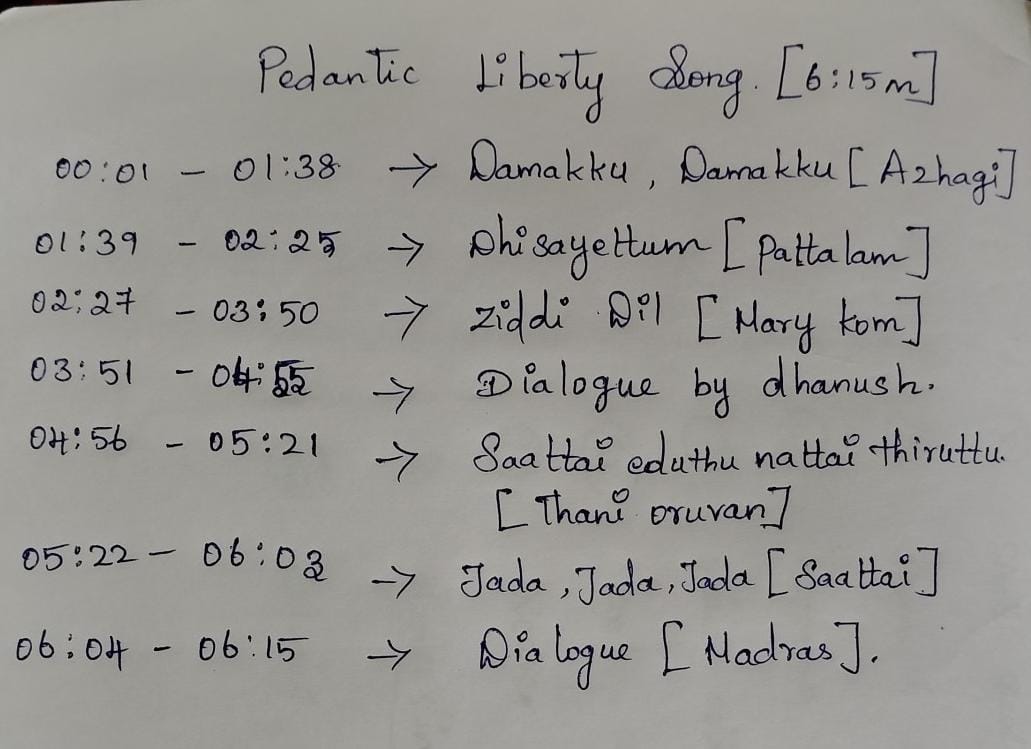 Pedantic Liberty Song. [6:15m]
00:01 - 01:38 → Damakku, Damakku [Azhagi]
01:39 - 02:25 → Dhisayettum [Pattalam]
02:27 - 03:50 → Ziddi Dil [Mary kom]
03:51 - 04:55 → Dialogue by dhanush.
04:56 - 05:21 → Saattai eduthu nattai thiruttu.
[Thani oruvan]
05:22 - 06:03 → Jada, Jada, Jada [Saattai]
06:04 - 06:15 → Dialogue [Madras].